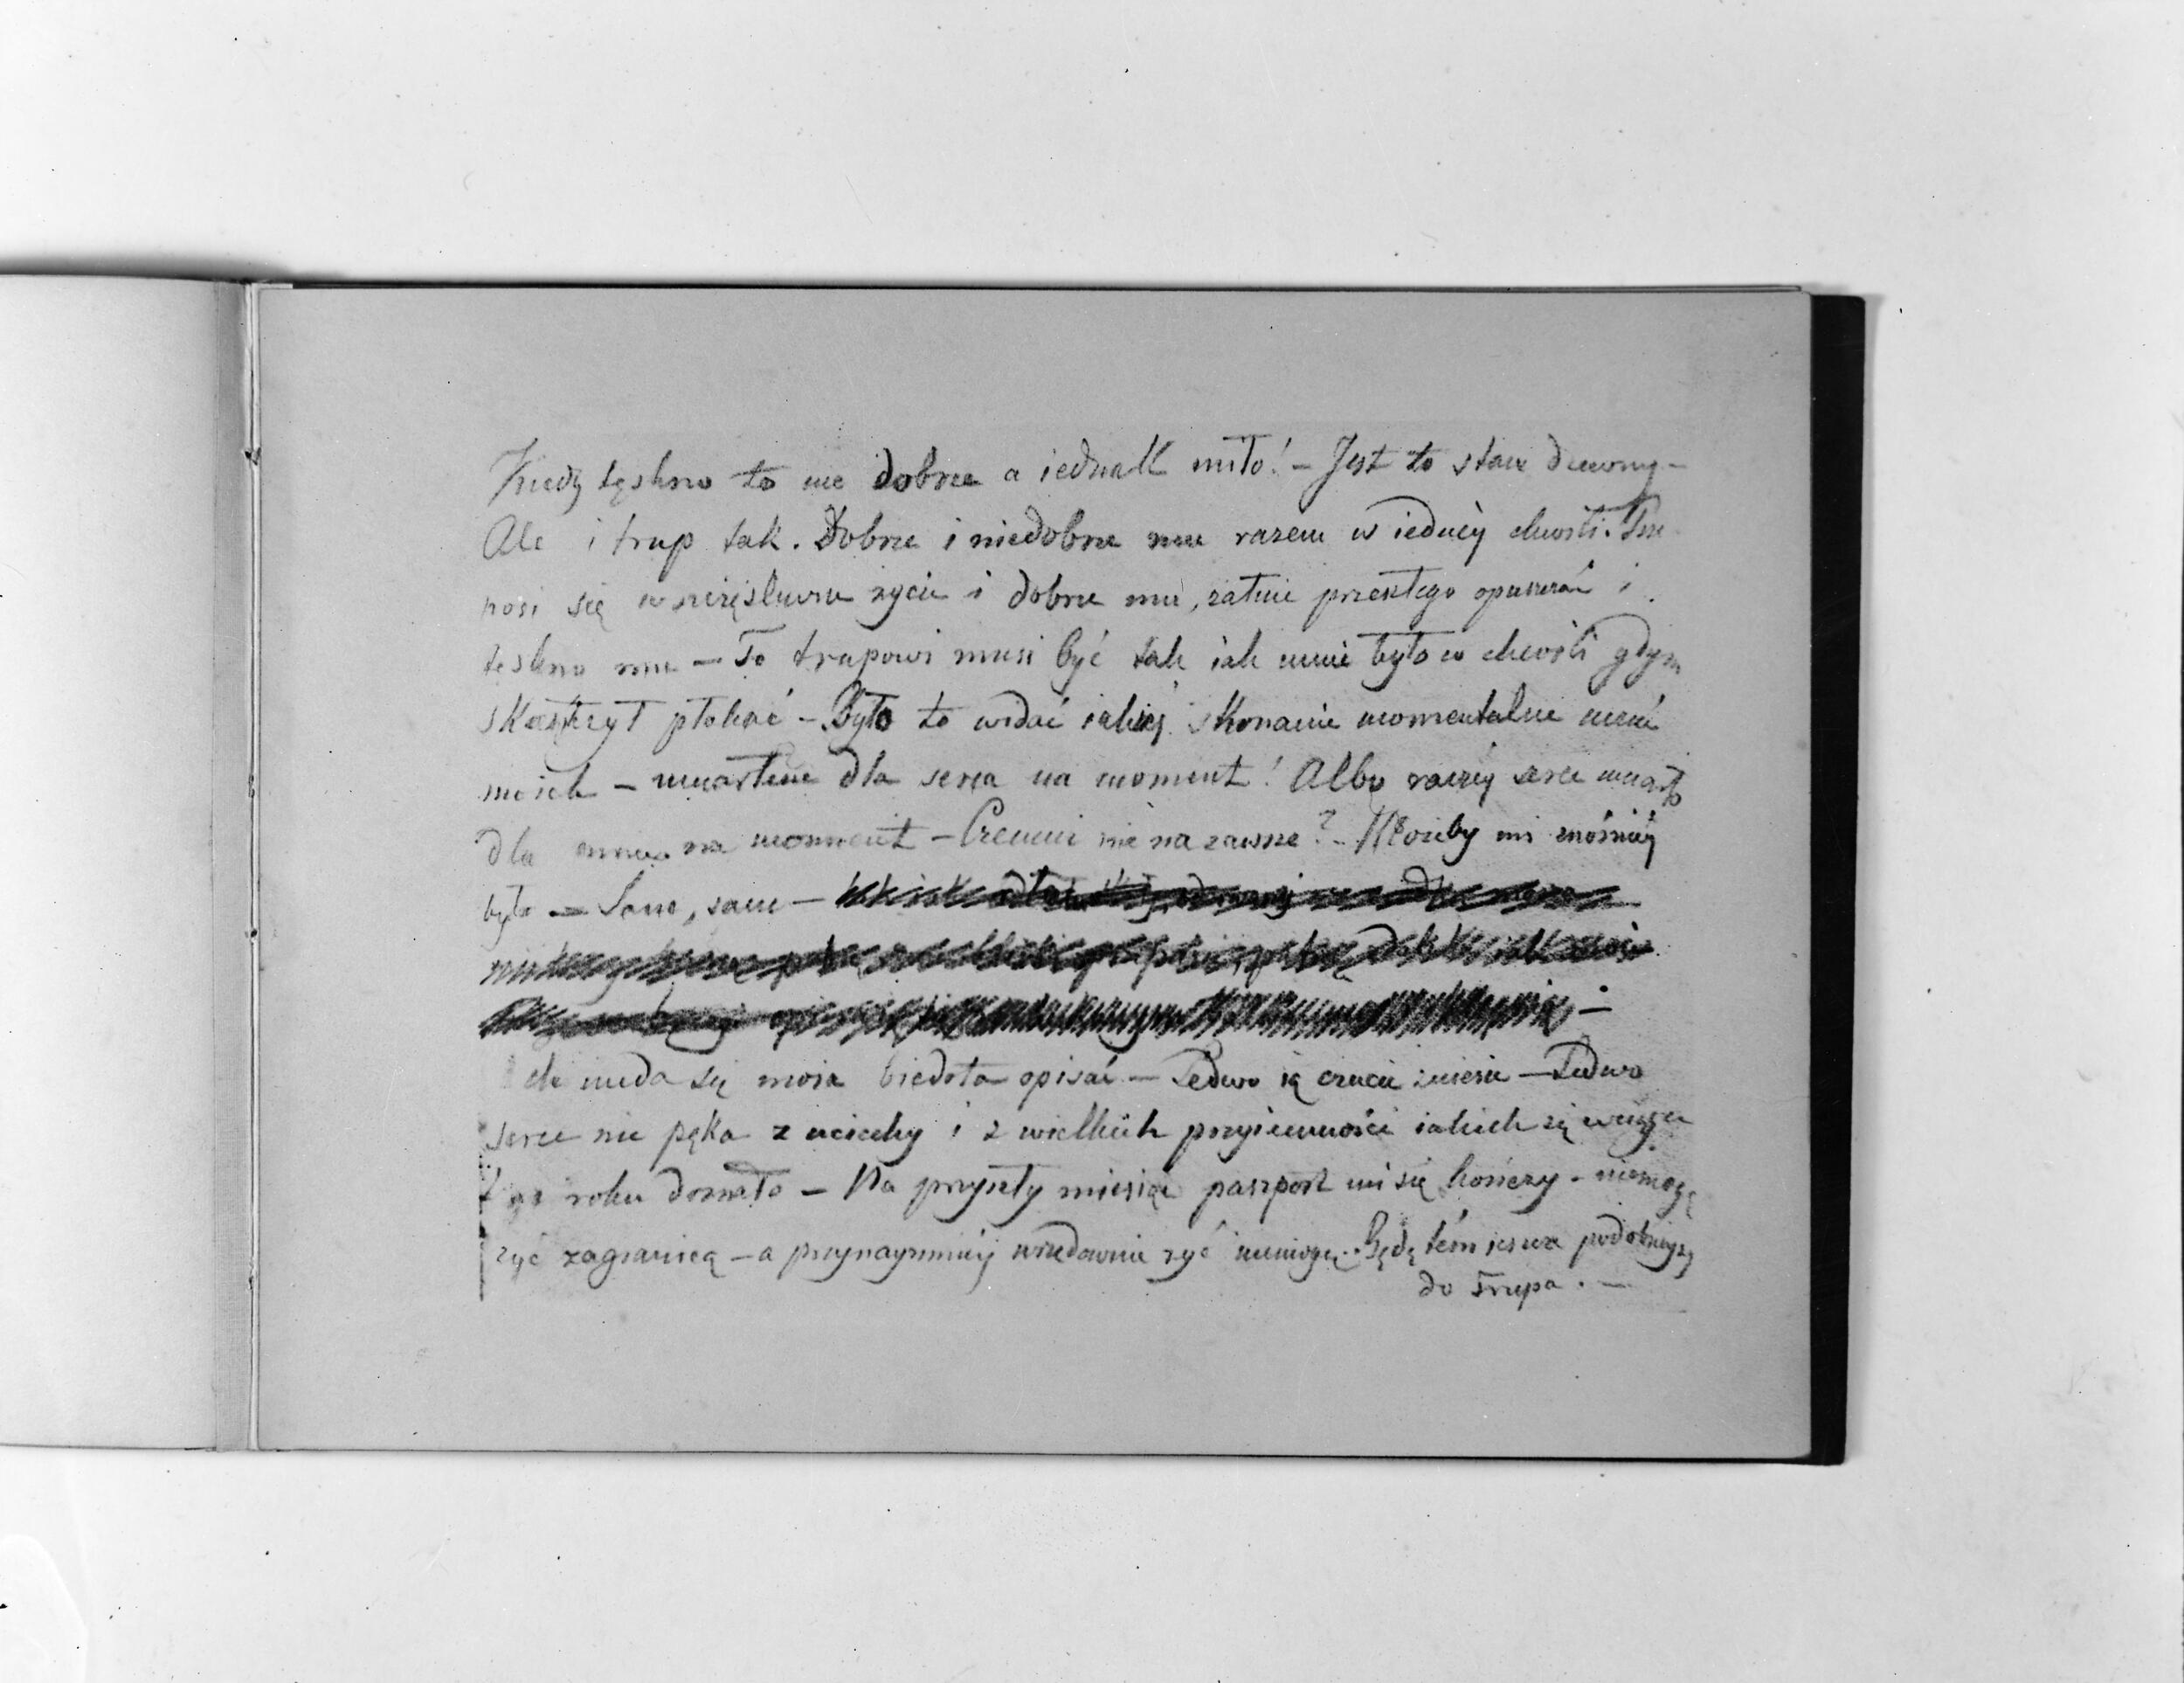 Kiedy tęskno to nie dobrze a iednak miło! – Jest to stan dziwny –
Ale i trup tak. Dobrze i niedobrze mu razem w iedney chwili. Prze
nosi się w szczęśliwsze życie i dobrze mu, żałuie przeszłego opuszczać i
teskno mu – To trupowi musi być tak iak mnie było w chwili gdym
skończył płakać – Było to widać iakieś skonanie momentalne uczuć
moich – umarłem dla serca na moment! Albo raczéy serce umarło
dla mnie na moment – Czemu nie na zawsze? – Możeby mi znośniéy
było – Same, same –
nieda się moia biedota opisać – Ledwo ią czucie zniesie – Ledwo
serce nie pęka z uciechy i z wielkich przyiemności iakich się w ciągu
tego roku doznało – Na przyszły miesiąc paszport mi się kończy – niemogę
żyć zagranicą – a przynaymniéy urzędownie żyć niemogę. Będę tém ieszcze podobnieyszy
do Trupa. –